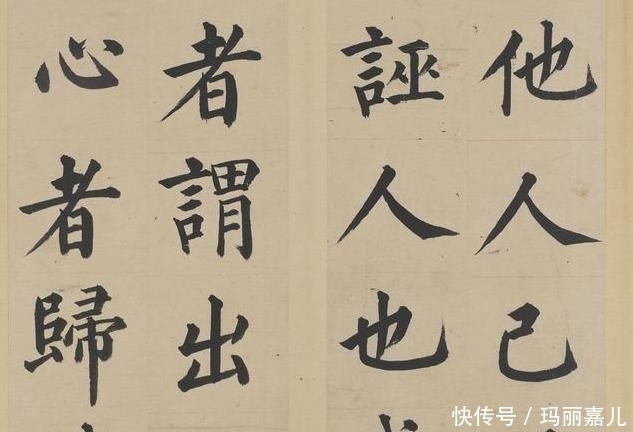 他人己
誣人也
者謂出
心者歸
快传号 / 玛丽嘉儿